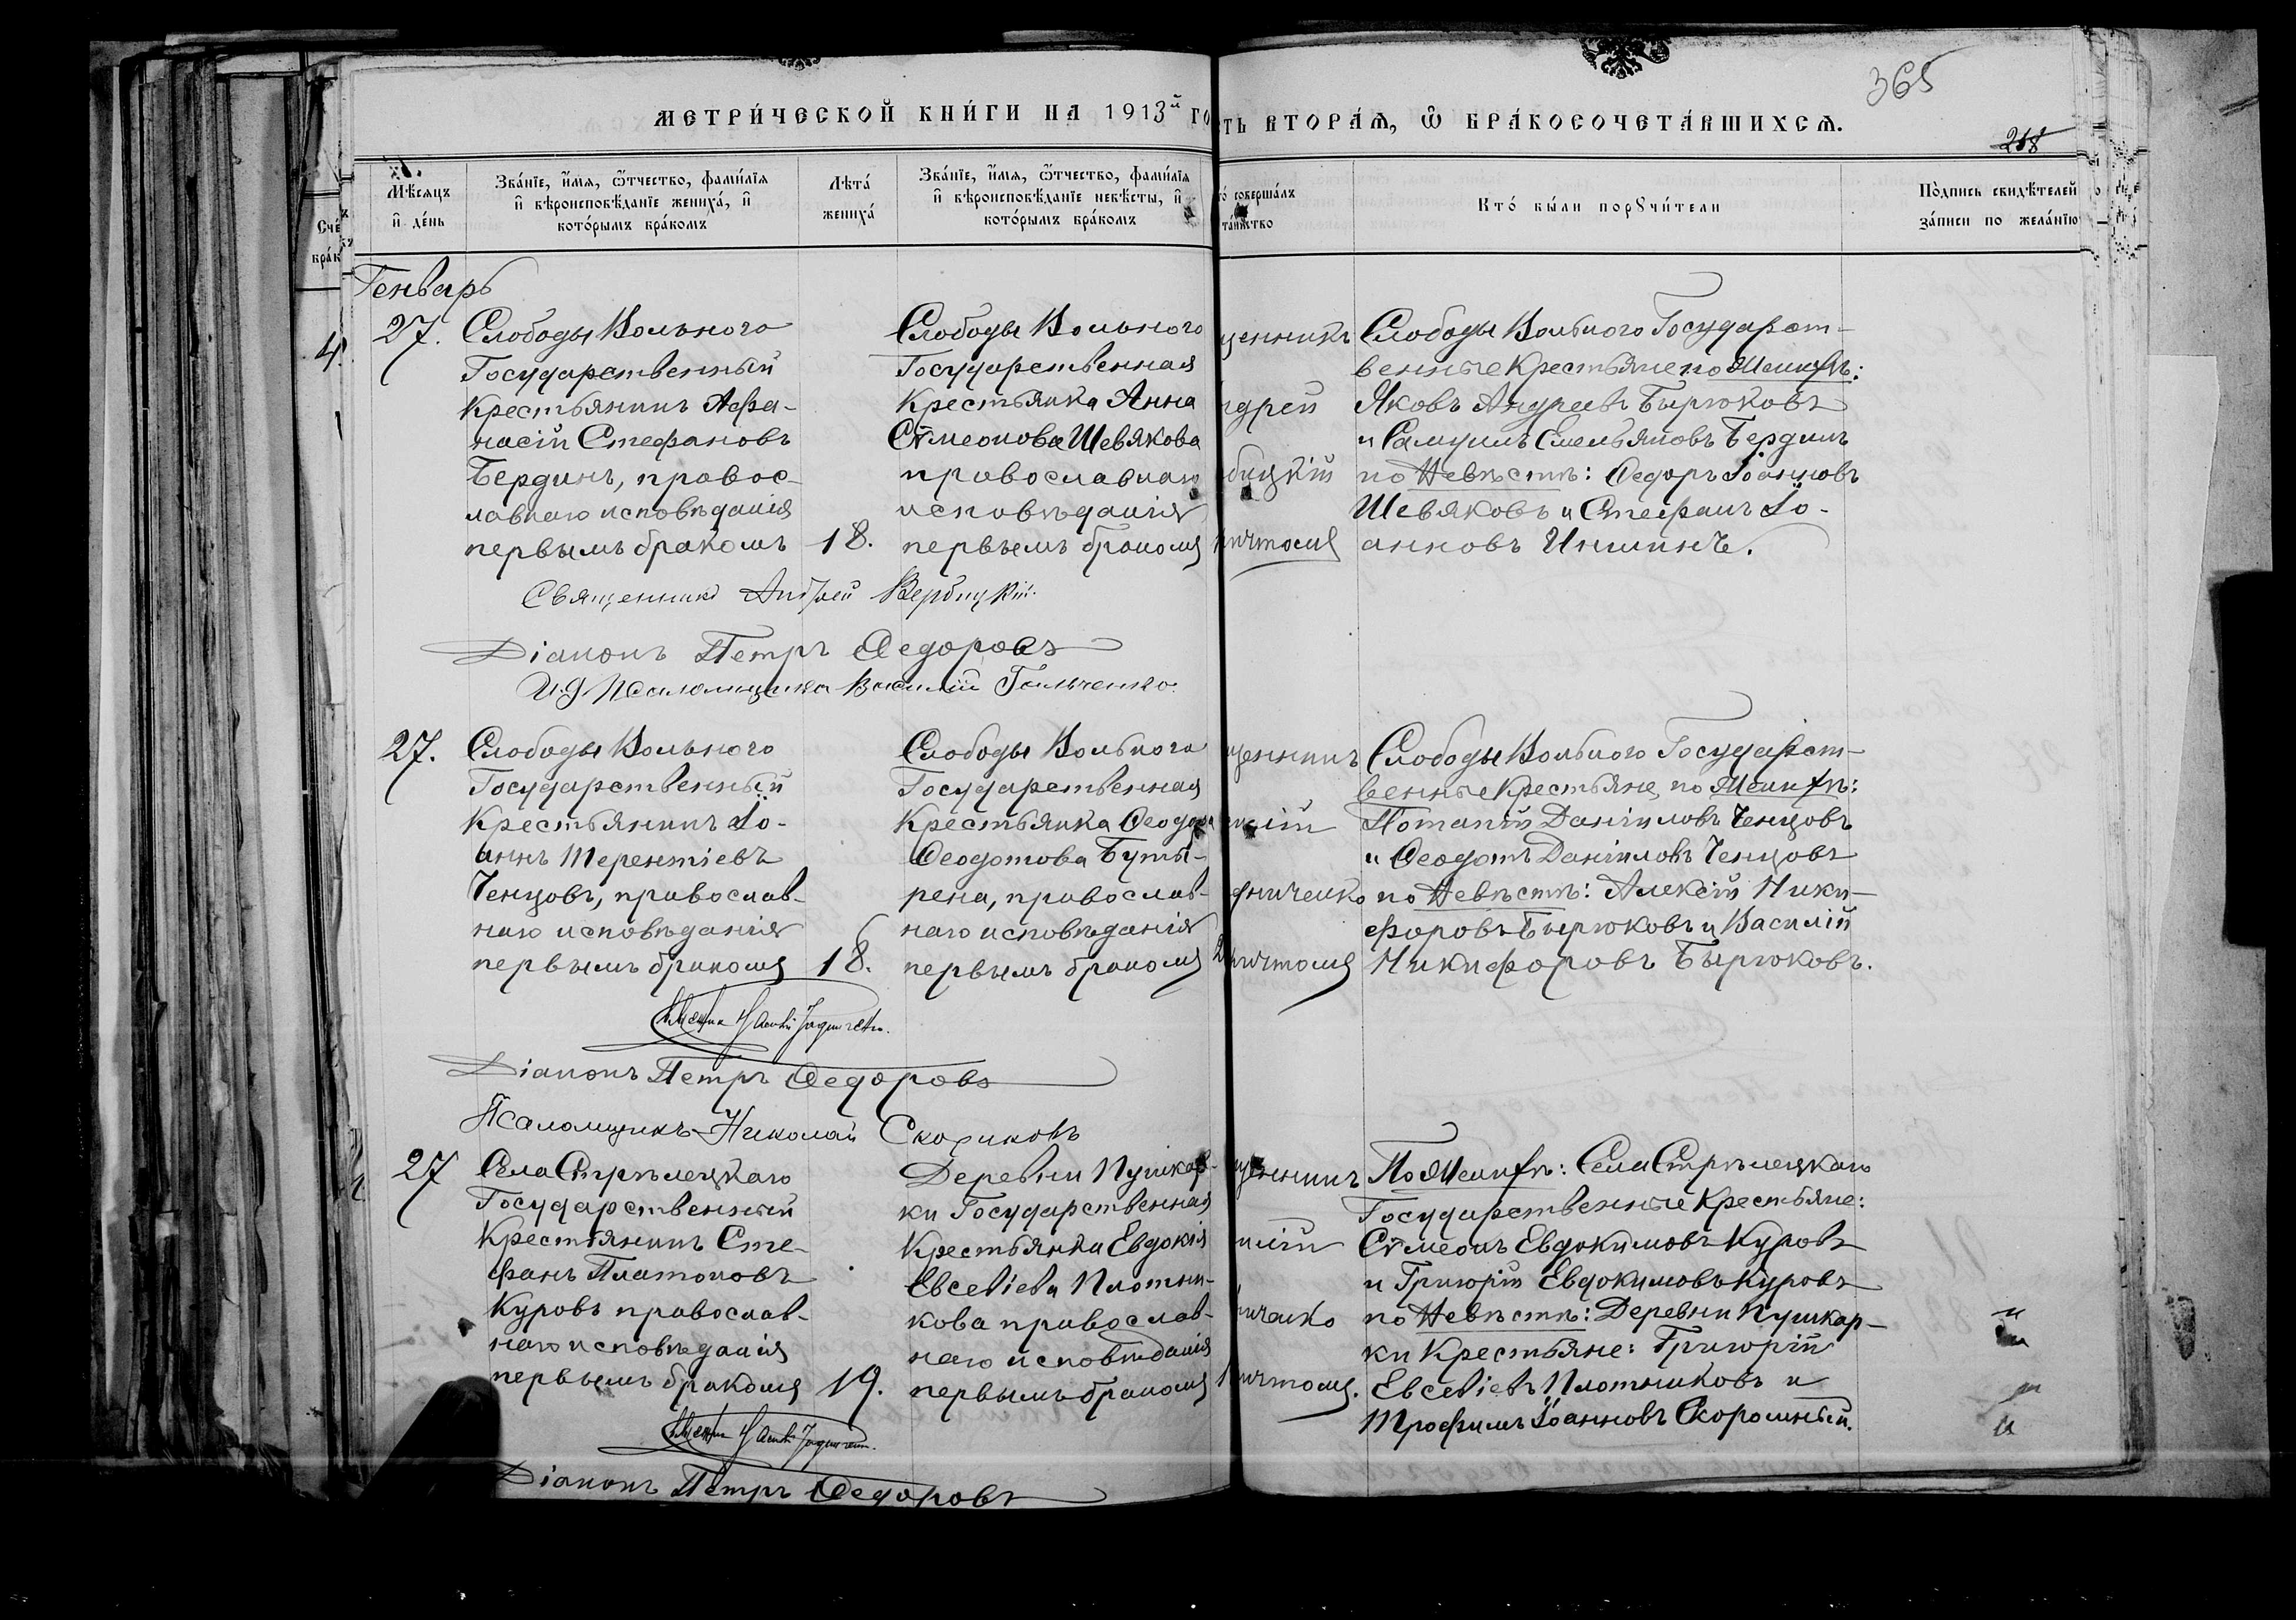 365
МЕТРИ́ЧЕСКОЙ КНИ́ГИ НА 1913й ГО
ТЬ ВТОРА́Я, Ѡ БРАКОСОЧЕТА́ВШИХСЯ.
218
Счё
бра́к
Мѣ́сяцъ
и҆ де́нь
Зва́нїе, и҆́мя, ѻ҆́тчество, фами́лїя
и҆ вѣроисповѣ́данїе жениха́, и҆
кото́рымъ бра́комъ
Лѣта́
жениха́
Зва́нїе, и҆́мя, ѻ҆́тчество, фами́лїя
и҆ вѣроисповѣ́данїе невѣ́сты, и҆
кото́рымъ бра́комъ
то́ соверша́лъ
та́инство
Кто́ бы́ли порꙋчи́тели
По́дпись свидѣ́телей
за́писи по жела́нїю
Генварь
4.
27.
Слободы Вольного
Государственный
Крестьянинъ Афа-
насій Стефановъ
Бердинъ, правос-
лавнаго исповѣданія
первымъ бракомъ
18.
Слободы Вольного
Государственная
Крестьянка Анна
Сѵмеонова Шевякова
православнаго
исповѣданія
первымъ бракомъ
щенникъ
ндрей
бицкій
ичтомъ
Слободы Вольного Государст-
венные Крестьяне по Женихѣ:
Яковъ Андреевъ Бырюковъ
и Самуилъ Емельяновъ Бердинъ
по Невѣстѣ: Ѳедоръ Іоанновъ
Шевяковъ и Стефанъ Іо-
анновъ Иншинъ.
Священникъ Андрей Вербицкій.
Діаконъ Петръ Ѳедоровъ
И.д. Псаломщика Василій Гальченко.
27.
Слободы Вольного
Государственный
Крестьянинъ Іо-
аннъ Терентіевъ
Ченцовъ, православ-
наго исповѣданія
первымъ бракомъ
18.
Слободы Вольного
Государственная
Крестьянка Ѳеодора
Ѳеодотова Буты-
рена, православ-
наго исповѣданія
первымъ бракомъ
щенникъ
силій
дниченко
ичтомъ
Слободы Вольного Государст-
венные Крестьяне, по Женихѣ:
Потапій Даніиловъ Ченцовъ
и Ѳеодотъ Даніиловъ Ченцовъ
по Невѣстѣ: Алексій Ники-
форовъ Бырюковъ и Василій
Никифоровъ Бырюковъ.
Діаконъ Петръ Ѳедоровъ
Псаломщикъ Николай Скориковъ
27
Села Стрѣлецкаго
Государственный
Крестьянинъ Сте-
фанъ Платоновъ
Куровъ православ-
наго исповѣданія
первымъ бракомъ
19.
Деревни Пушкар-
ки Государственная
Крестьянка Евдокія
Евсевіева Плотни-
кова православ-
наго исповѣданія
первымъ бракомъ
щенникъ
силій
ниченко
ичтомъ.
По Женихѣ: Села Стрѣлецкаго
Государственные Крестьяне:
Сѵмеонъ Евдокимовъ Куровъ
и Григорій Евдокимовъ Куровъ
по Невѣстѣ: Деревни Пушкар-
ки Крестьяне: Григорій
Евсевіевъ Плотниковъ и
Трофимъ Іоанновъ Скоромный.
Діаконъ Петръ Ѳедоровъ